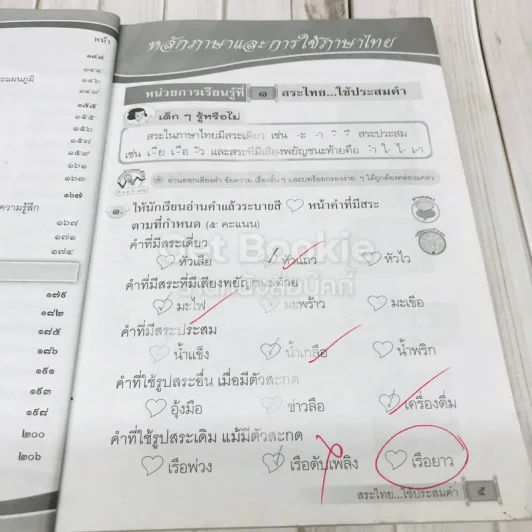 หน้า
๑๔๔
๑๔๔
ะแผนภูมิ
๑๔๖
๑๔๙
๑๕๕
๑๕๕
๑๕๖
๑๕๗
๑๕๙
๑๖๑
๑๖๓
๑๖๗
ความรู้สึก
๑๖๗
๑๗๑
๑๗๔
๑๗๙
๑๘๒
๑๘๕
๑๘๖
๑๙๑
๑๙๓
๑๙๘
๒๐๐
๒๐๖
หลักภาษาและการใช้ภาษาไทย
หน่วยการเรียนรู้ที่ ๑ สระไทย...ใช้ประสมคำ
เด็ก ๆ รู้หรือไม่
สระในภาษาไทยมีสระเดี่ยว เช่น -ะ -า -ิ -ี สระประสม
เช่น เ-ีย เ-ือ -ัว และสระที่มีเสียงพยัญชนะท้ายคือ -ำ ใ- ไ- เ-า
อ่านออกเสียงคำ ข้อความ เรื่องสั้น ๆ และบทร้อยกรองง่าย ๆ ได้ถูกต้องคล่องแคล่ว
๑. ให้นักเรียนอ่านคำแล้วระบายสี หน้าคำที่มีสระ
ตามที่กำหนด (๕ คะแนน)
คำที่มีสระเดี่ยว
หัวเสีย หัวแถว หัวไว
คำที่มีสระที่มีเสียงพยัญชนะท้าย
มะไฟ มะพร้าว มะเขือ
คำที่มีสระประสม
น้ำแข็ง น้ำเกลือ น้ำพริก
คำที่ใช้รูปสระอื่น เมื่อมีตัวสะกด
อุ้งมือ ข่าวลือ เครื่องดื่ม
คำที่ใช้รูปสระเดิม แม้มีตัวสะกด
เรือพ่วง เรือดับเพลิง เรือยาว
สระไทย...ใช้ประสมคำ ๕
Get Bookie
ร้านหนังสือบุ๊คกี้